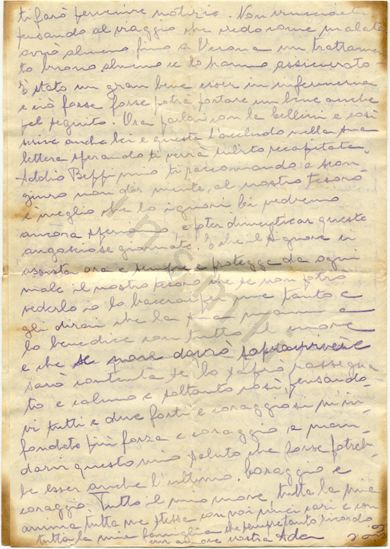 ti farò pervenire notizie. Non crucciarti
pensando al viaggio che vedo come malata
avrò almeno fino a Verona un trattamento
buono almeno ce lo hanno assicurato
È stato un gran bene esser in infermeria
e ciò forse forse potrà portare un bene anche
pel seguito! Ora parlai con la Bellini e così
scrive anche lei e questa t'accludo nella sua
lettera sperando ti verrà subito recapitata.
Addio Beppi mio ti raccomando e scongiuro
non dir niente al nostro tesoro
è meglio che lo ignori lei vedremo
ancora speriamo e poter dimenticar queste
angosciose giornate. Che il Signore vi
assista ora e sempre e protegga da ogni
male il nostro tesoro che se non potrò
vederlo io lo bacerai per me tanto e
gli dirai che la sua mamma
lo benedice con tutto il cuore
e che se non dovrò sopravvivere
sarò contenta se lo saprò rassegnato
e calmo e soltanto così pensandovi
tutti e due forti e coraggiosi mi
infondete più forza e coraggio a mandarvi
questo mio saluto che forse potrebbe
esser anche l'ultimo. Coraggio e
coraggio Tutto il mio amore, tutta la mia
anima tutta me stessa con voi miei cari e con
tutta la mia famiglia che sempre tanto ricordo
vostra Ada